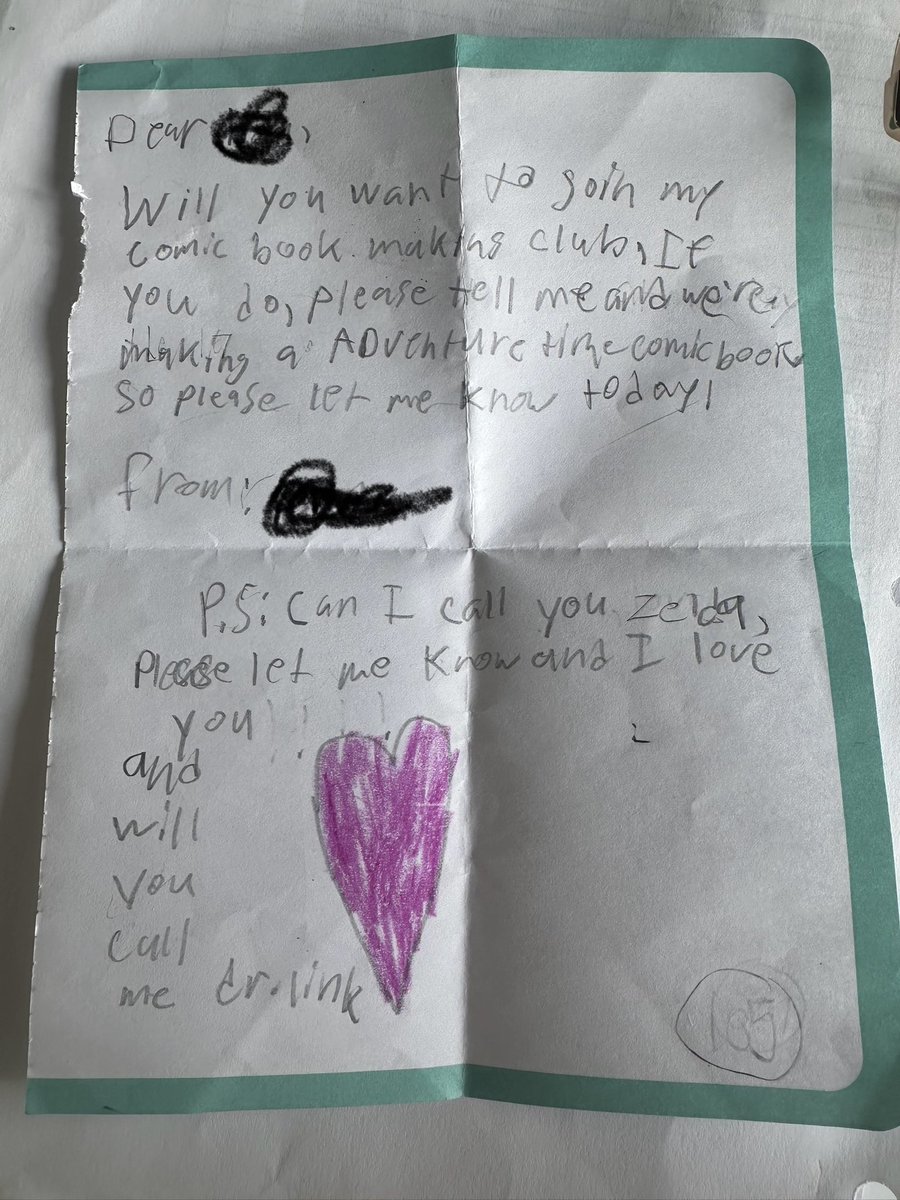 Dear
Will you want to join my
comic book making club, If
you do, please tell me and we're
making a ADVenture time comic book
So please let me know today!
from:
P.S: Can I call you Zelda,
Please let me know and I love
you!!!!!
and
will
you
call
me dr.link
105